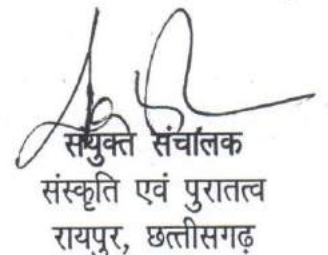 संयुक्त संचालक
संस्कृति एवं पुरातत्व
रायपुर, छत्तीसगढ़